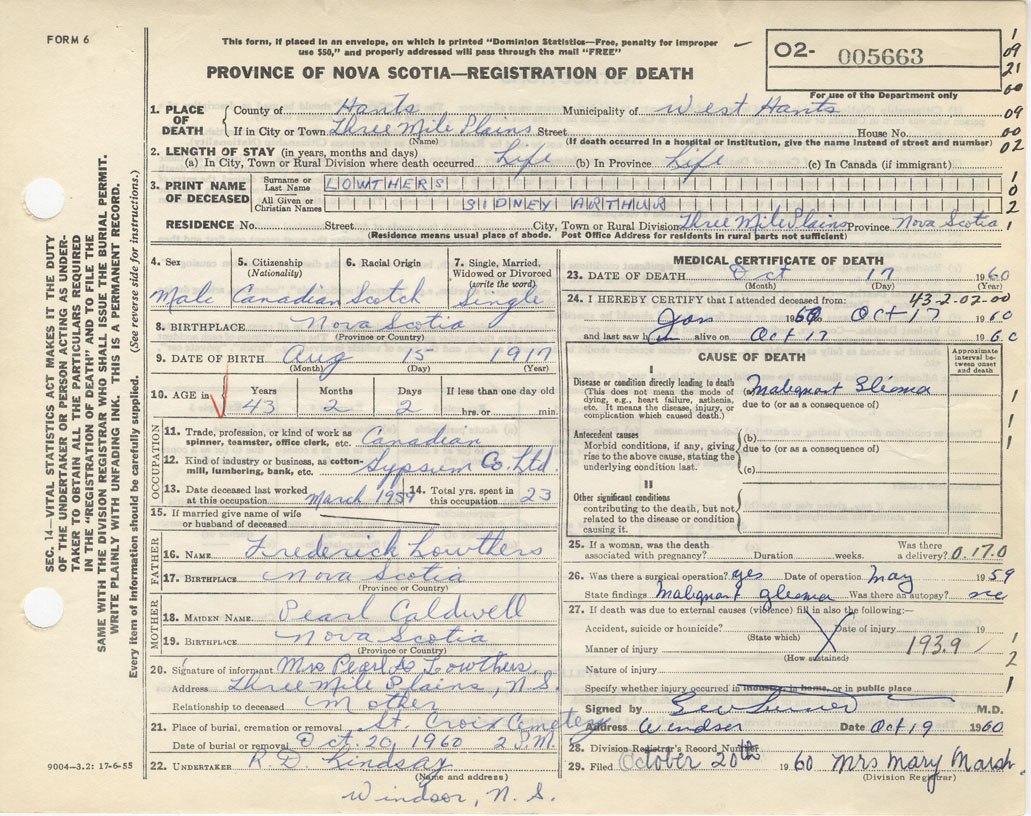 FORM 6
This form, if placed in an envelope, on which is printed "Dominion Statistics—Free, penalty for improper
use $50," and properly addressed will pass through the mail "FREE"
PROVINCE OF NOVA SCOTIA—REGISTRATION OF DEATH
O2- 005663
For use of the Department only
1
09
21
00
09
00
02
1. PLACE OF DEATH County of Hants Municipality of West Hants
If in City or Town Three Mile Plains Street House No.
(Name) (If death occurred in a hospital or Institution, give the name instead of street and number)
2. LENGTH OF STAY (in years, months and days)
(a) In City, Town or Rural Division where death occurred Life (b) In Province Life (c) In Canada (if immigrant)
3. PRINT NAME OF DECEASED Surname or Last Name LOWTHERS
All Given or Christian Names SIDNEY ARTHUR
1
0
2
1
RESIDENCE No. Street City, Town or Rural Division Three Mile Plains Province Nova Scotia
(Residence means usual place of abode. Post Office Address for residents in rural parts not sufficient)
4. Sex 5. Citizenship (Nationality) 6. Racial Origin 7. Single, Married, Widowed or Divorced (write the word)
Male Canadian Scotch Single
8. BIRTHPLACE Nova Scotia
(Province or Country)
9. DATE OF BIRTH Aug 15 1917
(Month) (Day) (Year)
10. AGE in Years Months Days If less than one day old
43 2 2 hrs. or min.
OCCUPATION
11. Trade, profession, or kind of work as spinner, teamster, office clerk, etc. Canadian
12. Kind of industry or business, as cotton-mill, lumbering, bank, etc. Gypsum Co. Ltd
13. Date deceased last worked at this occupation March 1959 14. Total yrs. spent in this occupation 23
15. If married give name of wife or husband of deceased
FATHER
16. NAME Frederick Lowthers
17. BIRTHPLACE Nova Scotia
(Province or Country)
MOTHER
18. MAIDEN NAME Pearl Caldwell
19. BIRTHPLACE Nova Scotia
(Province or Country)
20. Signature of informant Mrs Pearl Lowthers
Address Three Mile Plains, N.S.
Relationship to deceased Mother
21. Place of burial, cremation or removal St. Croix Cemetery
Date of burial or removal Oct. 20, 1960 2 P.M.
22. UNDERTAKER R.D. Lindsay
(Name and address)
Windsor, N.S.
MEDICAL CERTIFICATE OF DEATH
23. DATE OF DEATH Oct 17 1960
(Month) (Day)
24. I HEREBY CERTIFY that I attended deceased from: 43-2-02-00
Jan 1960 Oct 17 1960
and last saw him alive on Oct 17 1960
CAUSE OF DEATH
Approximate interval between onset and death
I
Disease or condition directly leading to death (a) Malignant Glioma
(This does not mean the mode of dying, e.g., heart failure, asthenia, etc. It means the disease, injury, or complication which caused death.)
due to (or as a consequence of)
Antecedent causes
Morbid conditions, if any, giving rise to the above cause, stating the underlying condition last.
(b)
due to (or as a consequence of)
(c)
II
Other significant conditions
contributing to the death, but not related to the disease or condition causing it.
1
1
1
25. If a woman, was the death associated with pregnancy? Duration weeks. Was there a delivery? 0.17.0
26. Was there a surgical operation? yes Date of operation May 1959
State findings Malignant glioma Was there an autopsy? no
27. If death was due to external causes (violence) fill in also the following:—
Accident, suicide or homicide? Date of injury 19
(State which)
Manner of injury 193.9
(How sustained)
Nature of injury
1
2
1
Specify whether injury occurred in industry, in home, or in public place
Signed by M.D.
Address Windsor Date Oct 19 1960
28. Division Registrar's Record Number
29. Filed October 20th 1960 Mrs Mary Marsh
(Division Registrar)
SEC. 14—VITAL STATISTICS ACT MAKES IT THE DUTY
OF THE UNDERTAKER OR PERSON ACTING AS UNDER-
TAKER TO OBTAIN ALL THE PARTICULARS REQUIRED
IN THE "REGISTRATION OF DEATH" AND TO FILE THE
SAME WITH THE DIVISION REGISTRAR WHO SHALL ISSUE THE BURIAL PERMIT.
WRITE PLAINLY WITH UNFADING INK. THIS IS A PERMANENT RECORD.
Every item of information should be carefully supplied. (See reverse side for instructions.)
9004—3.2: 17-6-55